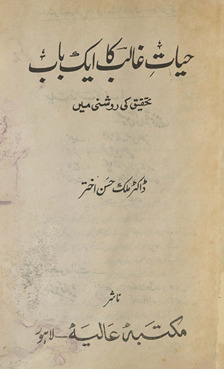 حیاتِ غالب کا ایک باب
تحقیق کی روشنی میں
ڈاکٹر ملک حسن اختر
ناشر
مکتبہ عالیہ - لاہور